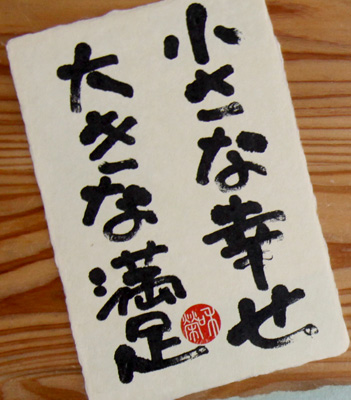 小さな幸せ
大きな満足